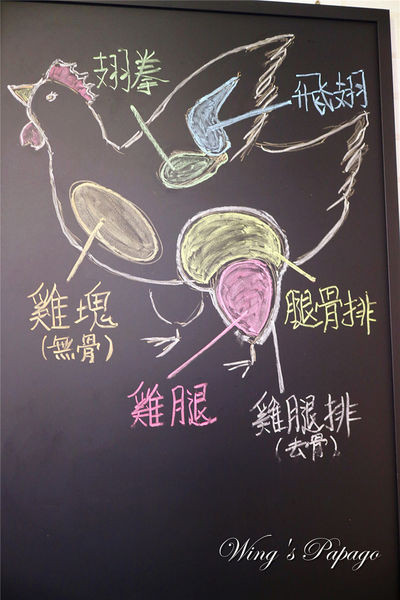 翅拳
飛翅
雞塊
(無骨)
腿骨排
雞腿
雞腿排
(去骨)
Wing's Papago